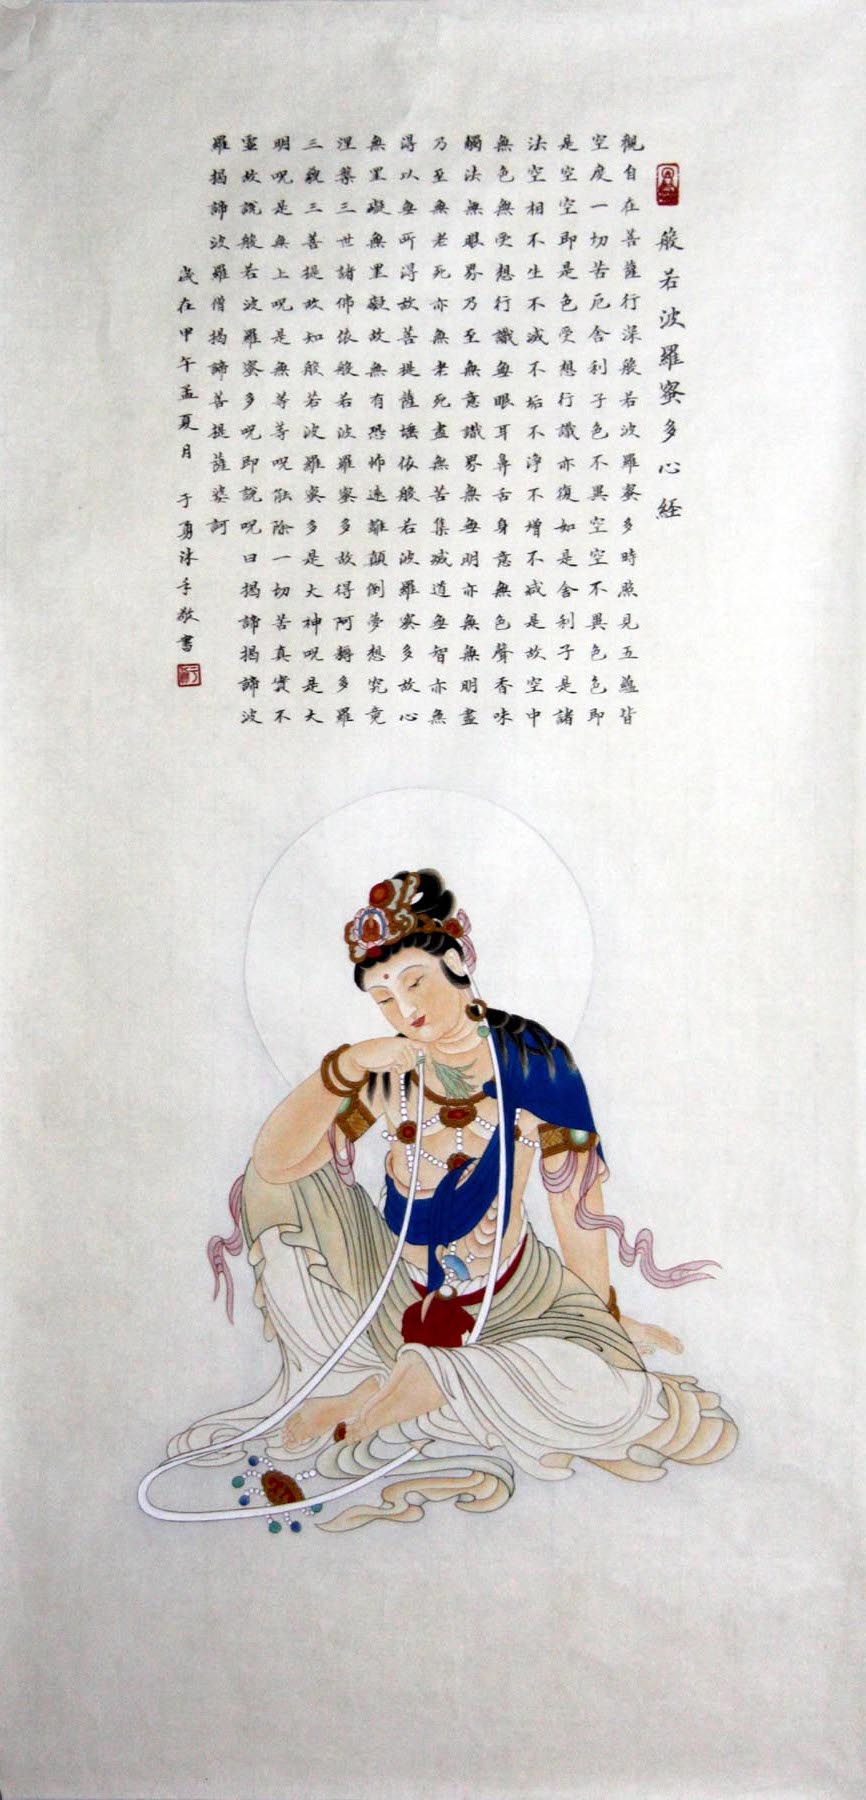 般若波羅蜜多心経
觀自在菩薩行深般若波羅蜜多時照見五蘊皆
空度一切苦厄舍利子色不異空空不異色色即
是空空即是色受想行識亦復如是舍利子是諸
法空相不生不滅不垢不淨不增不減是故空中
無色無受想行識無眼耳鼻舌身意無色聲香味
觸法無眼界乃至無意識界無無明亦無無明盡
乃至無老死亦無老死盡無苦集滅道無智亦無
得以無所得故菩提薩埵依般若波羅蜜多故心
無罣礙無罣礙故無有恐怖遠離顛倒夢想究竟
涅槃三世諸佛依般若波羅蜜多故得阿耨多羅
三藐三菩提故知般若波羅蜜多是大神呪是大
明呪是無上呪是無等等呪能除一切苦真實不
靈故說般若波羅蜜多呪即說呪曰揭諦揭諦波
羅揭諦波羅僧揭諦菩提薩婆訶
歲在甲午孟夏月 于勇沐手敬書